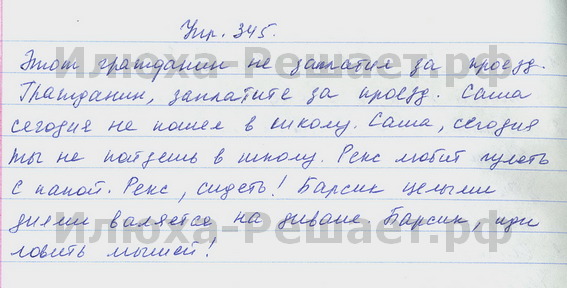 Упр. 345.
Этот гражданин не заплатил за проезд.
Гражданин, заплатите за проезд. Саша
сегодня не пошел в школу. Саша, сегодня
ты не пойдешь в школу. Рекс любит гулять
с папой. Рекс, сидеть! Барсик целыми
днями валяется на диване. Барсик, иди
ловить мышей!
Илюха-Решает.рф
Илюха-Решает.рф